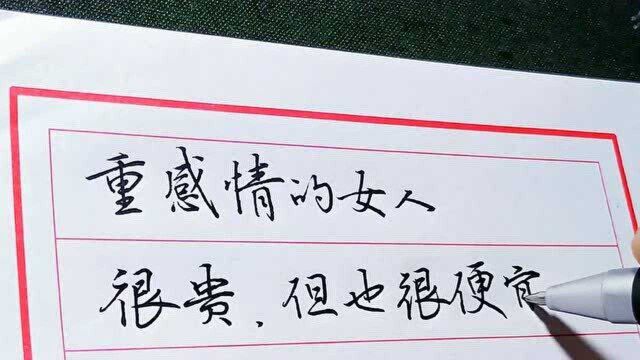 重感情的女人
很贵，但也很便宜